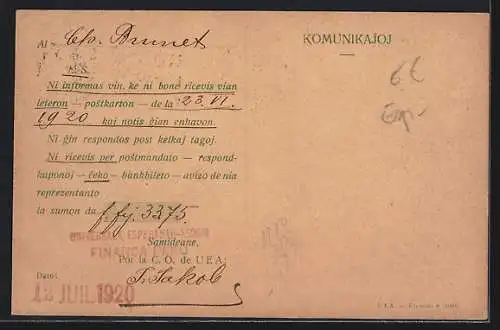 Al Ch. Brunet
KOMUNIKAĴOJ
Ni informas vin, ke ni bone ricevis vian
leteron — poŝtkarton — de la 23. VI.
1920 kaj notis ĝian enhavon.
Ni ĝin respondos post kelkaj tagoj.
Ni ricevis per poŝtmandato — respond-
kuponoj — ĉeko — bankbileto — avizo de nia
reprezentanto
la sumon du f. fj. 33.75.
UNIVERSALA ESPERANTO-ASOCIO
FINANCA FAKO
Samideane,
Por la C. O. de UEA:
Dato:
12 JUIL 1920
J. Jakob
6€